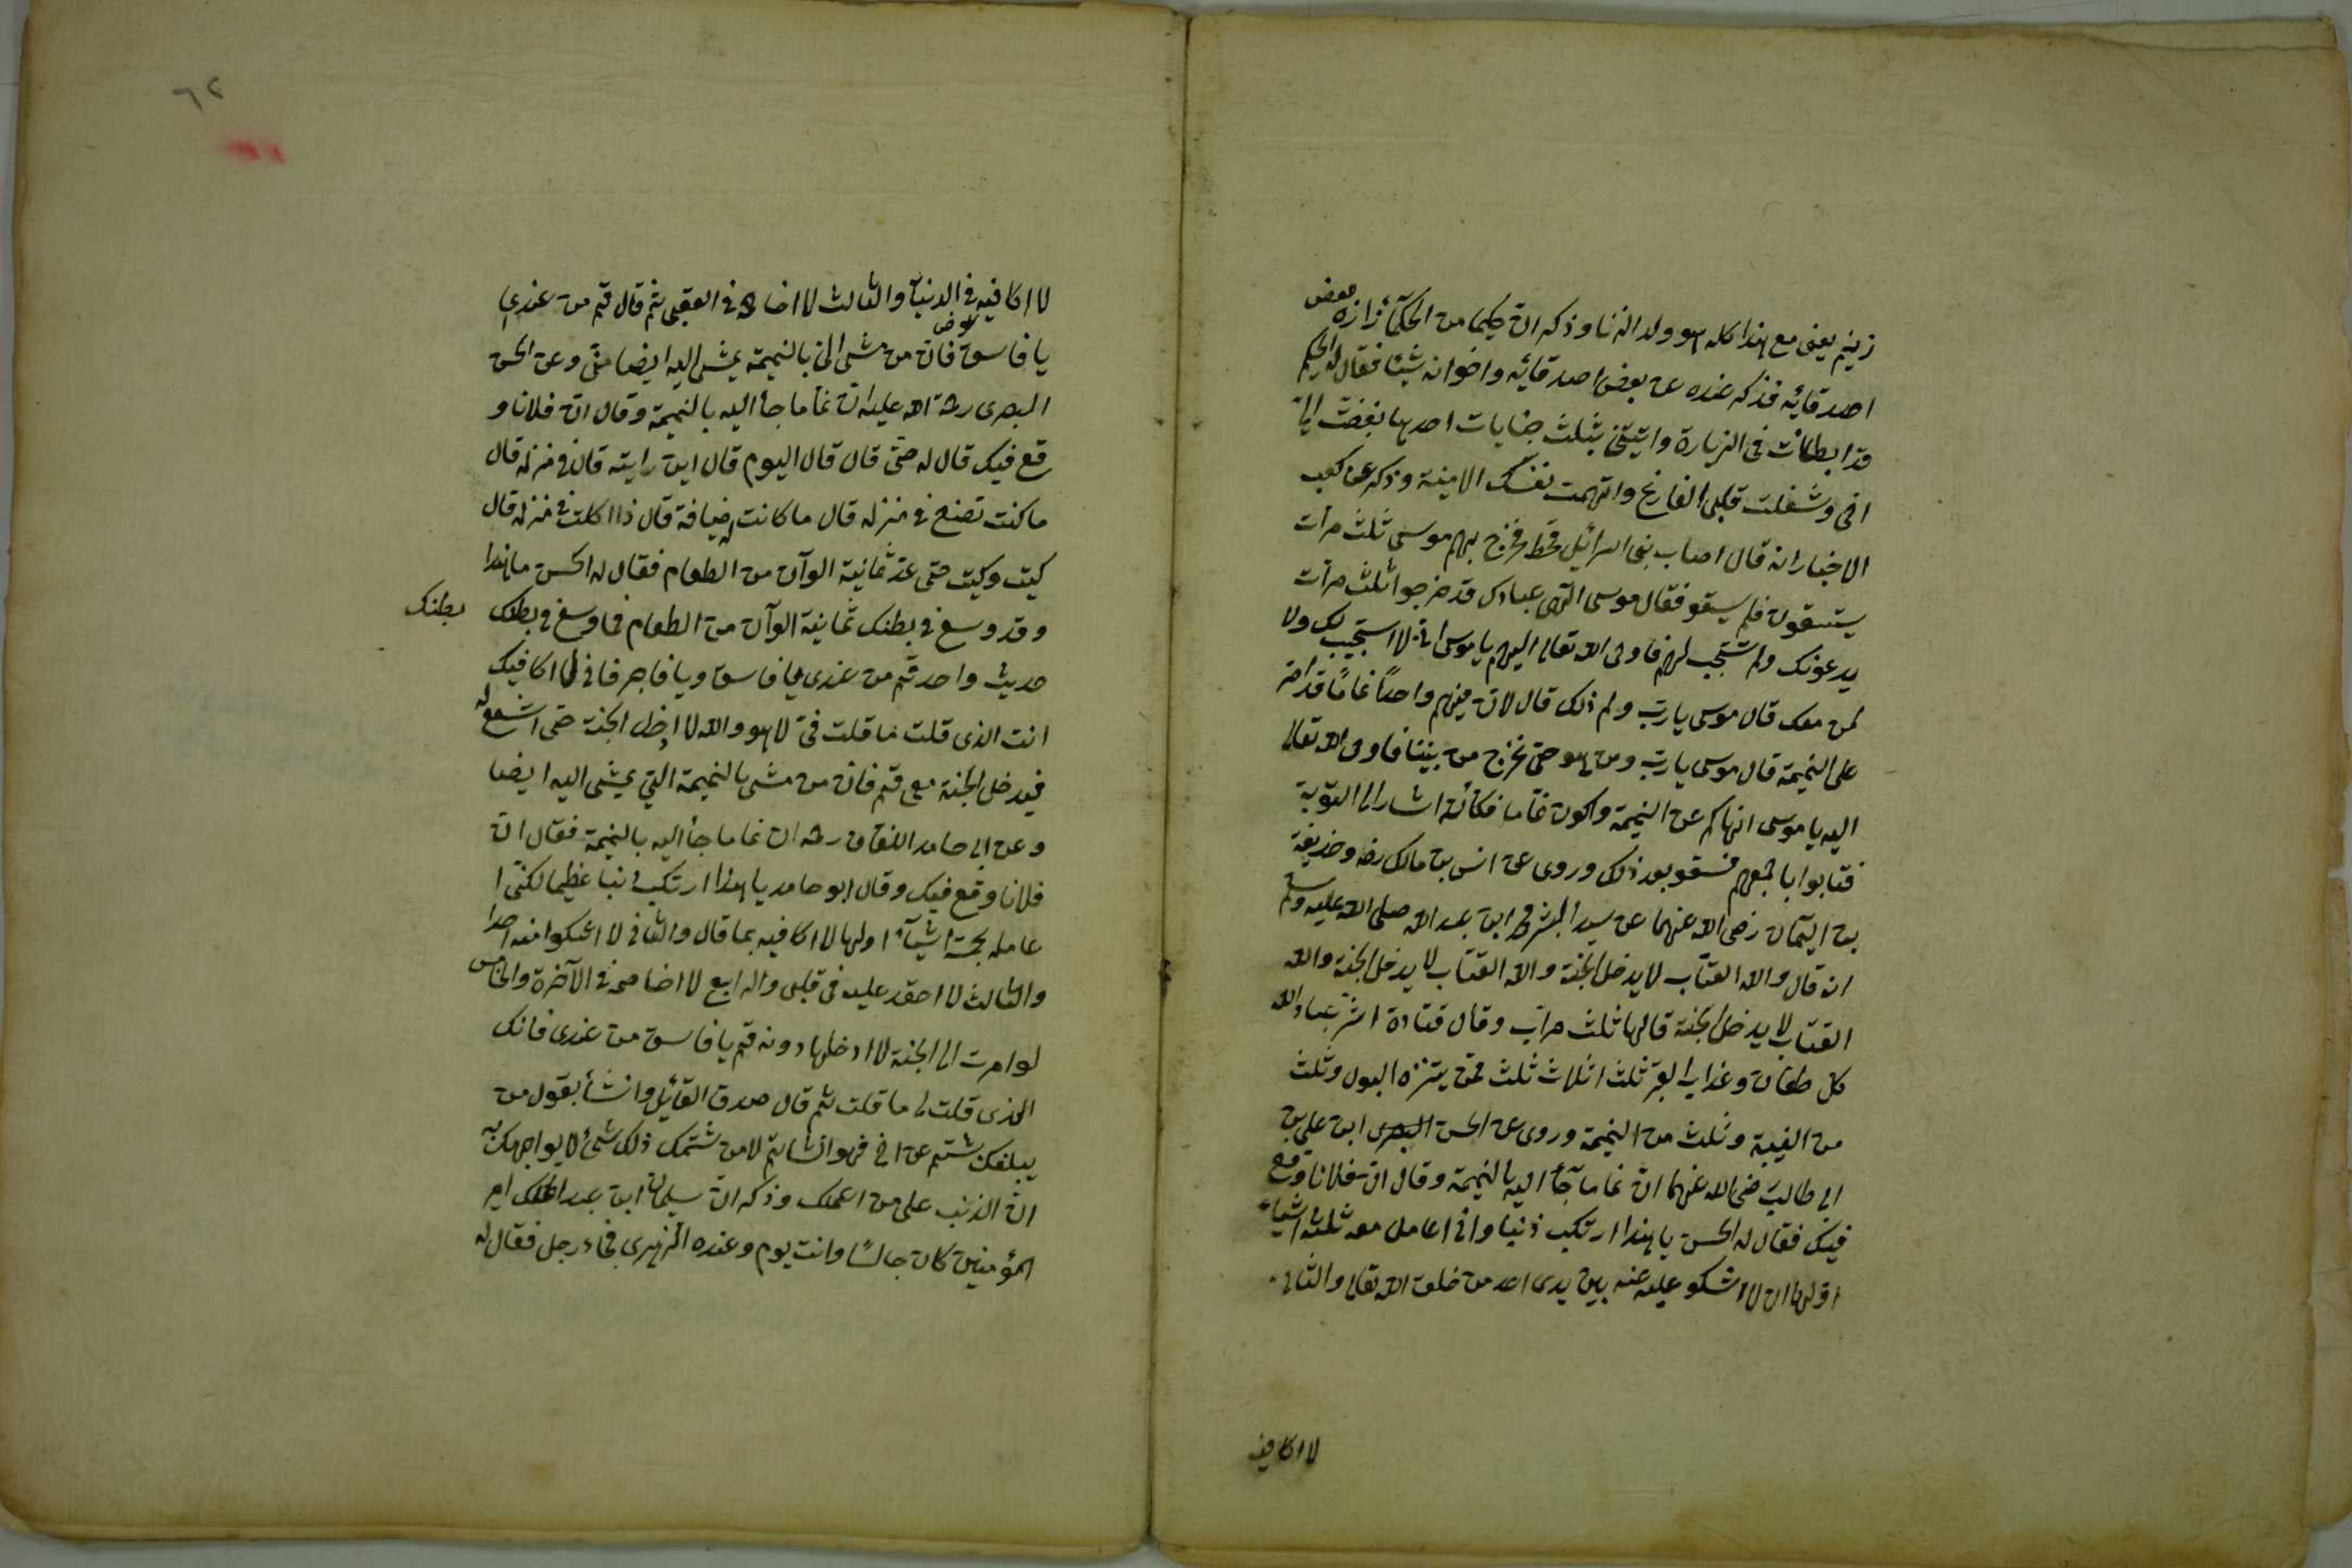 زنيم يعنى مع هذا كله هو ولد الزنا وذكر ان حكيما من الحكمآء زاره بعض
اصدقائه فذكر عنده عن بعض اصدقائه واخوانه شيئا فقال له الحكيم
قد ابطائت فى الزيارة واتيتنى بثلث جنايات احديها بغضت الىّ
اخى وشغلت قلبى الفارغ واتهمت نفسك الامينة وذكر عن كعب
الاخبار انه قال اصاب بنى اسرائيل قحط فخرج بهم موسى ثلث مرات
يستسقون فلم يسقو فقال موسى الهى عبادك قد خرجوا ثلث مرات
يدعونك ولم تستجب لهم فاوحى الله تعالى اليهم يا موسى انى لا استجيب لك ولا
لمن معك قال موسى يا ربّ ولم ذلك قال لان فيهم واحدًا نمامًا قد اصر
على النميمة قال موسى يا ربّ ومن هو حتى نخرج من بيننا فاوحى الله تعالى
اليه يا موسى انهاكم عن النميمة واكون نماما فكانّه اشار الى التوبة
فتابوا باجمعهم فسقو بعد ذلك وروى عن انس بن مالك رضه وحذيفة
بن اليمان رضى الله عنهما عن سيد البشر محمد ابن عبد الله صلى الله عليه وسلم
انه قال والله القتّاب لا يدخل الجنة والله القتاب لا يدخل الجنة والله
القتاب لا يدخل الجنة قالها ثلث مرات وقال قتادة اشر عباد الله
كل طعان وعذاب القبر ثلث اثلاث ثلث ممن يتنزه البول وثلث
من الغيبة وثلث من النميمة وروى عن الحسن البصرى ابن على بن
ابى طالب رضى الله عنهما ان نماما جآء اليه بالنميمة وقال انّ فلانا وقع
فيك فقال له الحسن يا هذا ارتكب ذنبا وانى اعامل معه ثلثة اشياء
اولها ان لا اشكو عليه عنه بين يدى احد من خلق الله تعالى والثانى
لا اكافيه
٦٢
لا اكافيه فى الدنيا والثالث لا اخاصمه فى العقبى ثم قال قم من عندى
عوض
يا فاسق فان من مشى الىّ بالنميمة يمشى اليه ايضا منّى وعن الحسن
البصرى رحمة الله عليه ان نماما جاء اليه بالنميمة وقال ان فلانا و
قع فيك قال له حتى قال قال اليوم قال اين رايته قال فى منزله قال
ما كنت تصنع فى منزله قال ما كانت له ضيافة قال ذا اكلت فى منزله قال
كيت وكيت حتى عدّ ثمانية الوآن من الطعام فقال له الحسن ما هذا
وقد وسع فى بطنك ثمانية الوآن من الطعام فما وسع فى بطنك بطنك
حديث واحد قم من عندى يا فاسق ويا فاجر فانى لا اكافيك
انت الذى قلت ما قلت فىّ لا هو والله لا ادخل الجنة حتى اشفع له
فيدخل الجنة معى قم فان من مشى بالنميمة التي يمشى اليه ايضا
وعن ابى حامد اللفاف رحمه ان نماما جاء اليه بالنميمة فقال انّ
فلانا وقع فيك وقال ابو حامد يا هذا ارتكب ذنبا عظيما لكنّى ا
عامله بخمسة اشيآء اولها لا اكافيه بما قال والثانى لا اشكوا منه احدا
والثالث لا احقد عليه فى قلبى والرابع لا اخاصمه فى الآخرة والخامس
لو امرت الى الجنة لا ادخلها دونه قم يا فاسق من عندى فانك
الذى قلت لى ما قلت ثم قال صدق القائل وانشأ بقول من
يبلغك شتم عن اخ فهو الشاتم لا من شتمك ذلك شئ لا يواجهك به
ان الذنب على من اعملك وذكر ان سليمان ابن عبد الملك امير
المؤمنين كان جالسًا وانت يوم وعنده الزهرى فجاء رجل فقال له